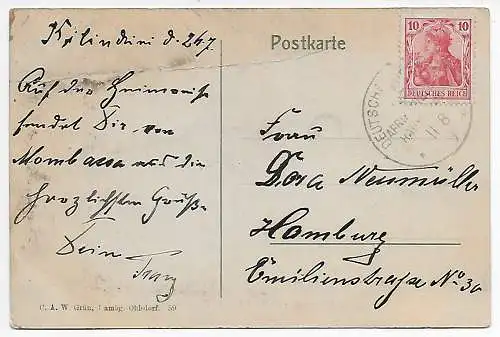 Kilindini d. 24.7.
Postkarte
10 10
DEUTSCHES REICH
DEUTSCHE
11 8
Auf der Heimreise
sendet Dir von
Mombassa aus die
herzlichsten Grüße
Dein
Franz
Frau
Dora Neumüller
Hamburg
Emilienstraße No 30
C. A. W. Grün, Hambg.-Ohlsdorf. 59